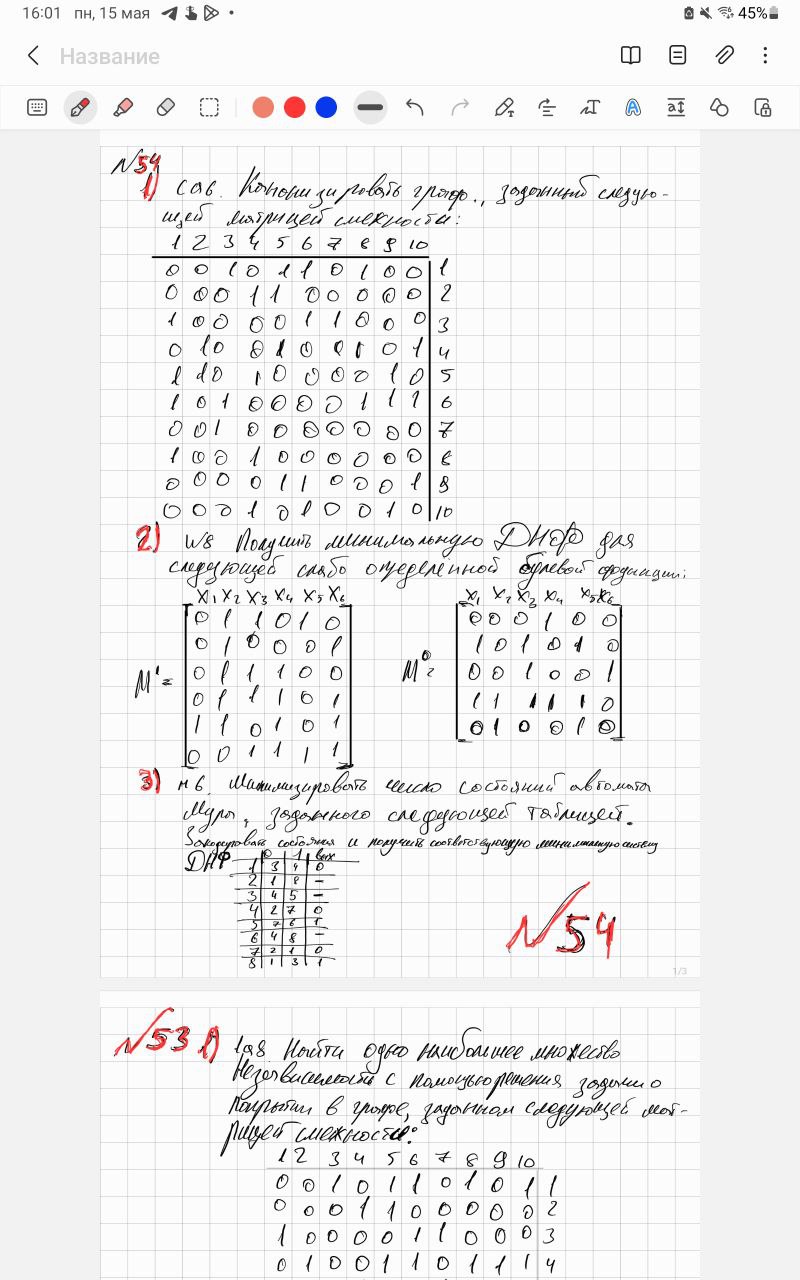 16:01 пн, 15 мая
45%
Название
№54
1) Канонизировать граф., заданный следую-
щей матрицей смежности:
1 2 3 4 5 6 7 8 9 10
0 0 1 0 1 1 0 1 0 0 1
0 0 0 1 1 0 0 0 0 0 2
1 0 0 0 0 1 1 0 0 0 3
0 1 0 0 1 0 1 0 1 4
1 1 0 1 0 0 0 0 1 0 5
1 0 1 0 0 0 0 1 1 1 6
0 0 1 0 0 0 0 0 0 0 7
1 0 0 1 0 0 0 0 0 0 8
0 0 0 0 1 1 0 0 0 1 9
0 0 0 1 0 1 0 0 1 0 10
2) Получить минимальную ДНФ для
следующей слабо определенной булевой функции:
x1 x2 x3 x4 x5 x6 x1 x2 x3 x4 x5 x6
M¹ =
0 1 1 0 1 0
0 1 0 0 0 1
0 1 1 1 0 0
0 1 1 1 0 1
1 1 0 1 0 1
0 0 1 1 1 1
M⁰ =
0 0 0 1 0 0
1 0 1 0 1 0
0 0 1 0 0 1
1 1 1 1 1 0
0 1 0 0 1 0
3) Минимизировать число состояний автомата
Мура, заданного следующей таблицей.
Закодировать состояния и получить соответствующую минимальную систему
ДНФ
0 1 вых
1 3 4 0
2 1 8 -
3 4 5 -
4 2 7 0
5 7 6 1
6 4 8 -
7 2 1 0
8 1 3 1
№54
1/3
№53 1) Найти одно наибольшее множество
независимости с помощью решения задачи о
покрытии в графе, заданном следующей мат-
рицей смежности:
1 2 3 4 5 6 7 8 9 10
0 0 1 0 1 1 0 1 0 1 1
0 0 0 1 1 0 0 0 0 0 2
1 0 0 0 0 1 1 0 0 0 3
0 1 0 0 1 1 0 1 1 1 4